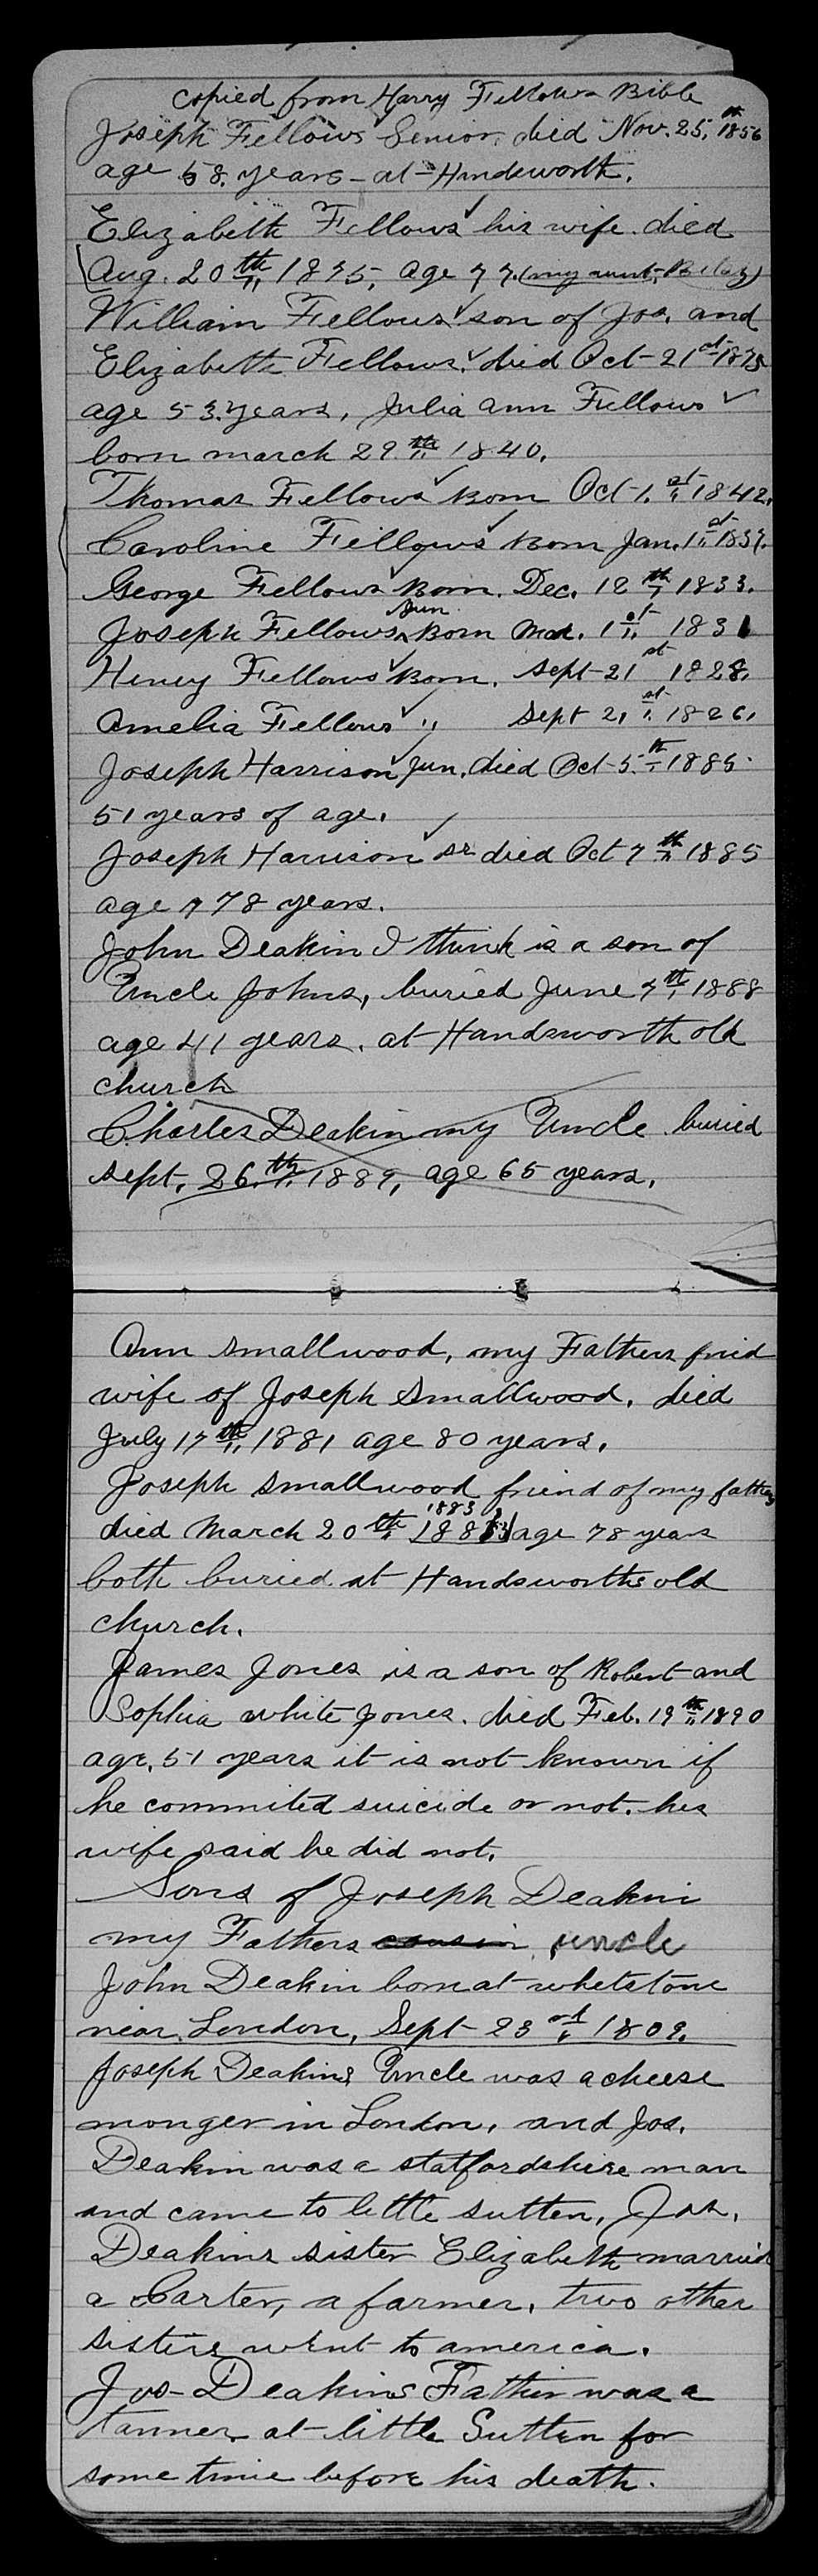 copied from Harry Fellows Bible
Joseph Fellows Senior, died Nov. 25, th 1856
age 58. years - at - Handsworth.
Elizabeth Fellows his wife. died
Aug. 20th, 1875, age 77. (my aunt, Betsy)
William Fellows son of Jos. and
Elizabeth Fellows. died Oct - 21st 1875
age 53. years, Julia ann Fellows
born march 29th 1840.
Thomas Fellows Born Oct - 1. st 1842.
Caroline Fellows Born Jan. 1st 1837.
George Fellows Born. Dec. 18th 1833.
Joseph Fellows Jun. Born Mar. 1st 1831
Henry Fellows Born. Sept - 21st 1828.
Amelia Fellows " Sept 21st 1826.
Joseph Harrison Jun. died Oct - 5.th 1885.
51 years of age.
Joseph Harrison sr died Oct 7th 1885
age 78 years.
John Deakin I think is a son of
Uncle Johns, buried June 7th, 1888
age 41 years. at Handsworth old
church
Charles Deakin my Uncle buried
sept. 26.th. 1889, age 65 years.
Ann Smallwood, my Fathers fried
wife of Joseph Smallwood. died
July 17th, 1881 age 80 years.
Joseph Smallwood friend of my father
1883
died March 20th 1883 age 78 years
both buried at Handsworths old
church.
James Jones is a son of Robert and
Sophia white Jones. died Feb. 19th 1890
age. 51 years it is not known if
he commited suicide or not. his
wife said he did not.
Sons of Joseph Deakin
my Fathers cousin uncle
John Deakin born at whetstone
near London, Sept - 23rd 1809.
Joseph Deakins Uncle was a cheese
monger in London, and Jos.
Deakin was a statfordshire man
and came to little sutten, Jos.
Deakins sister Elizabeth married
a Carter, a farmer, two other
sisters went to america.
Jos - Deakins Father was a
tanner at - little Sutten for
some time before his death.